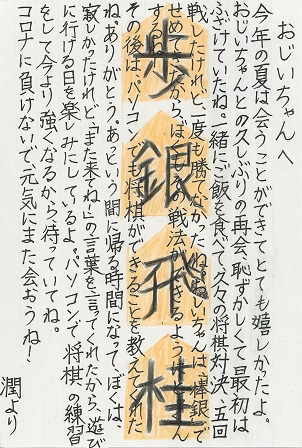 おじいちゃんへ
今年の夏は会うことができてとても嬉しかったよ。
おじいちゃんとの久しぶりの再会、恥ずかしくて最初は
ふざけていたね。一緒にご飯を食べて、久々の将棋対決。五回
戦ったけれど、一度も勝てなかったね。おじいちゃんは、棒銀で
せめてきたから、ぼくもその戦法ができるようにします
その後は、パソコンでも将棋ができることを教えてくれた
ね。ありがとう。あっという間に帰る時間になって、ぼくは、
寂しかったけれど、「また来てね」の言葉を言ってくれたから、遊び
に行ける日を楽しみにしているよ。パソコンで将棋の練習
をして今より強くなるから、待っていてね。
コロナに負けないで、元気にまた会おうね！
潤より
歩
銀
飛
桂